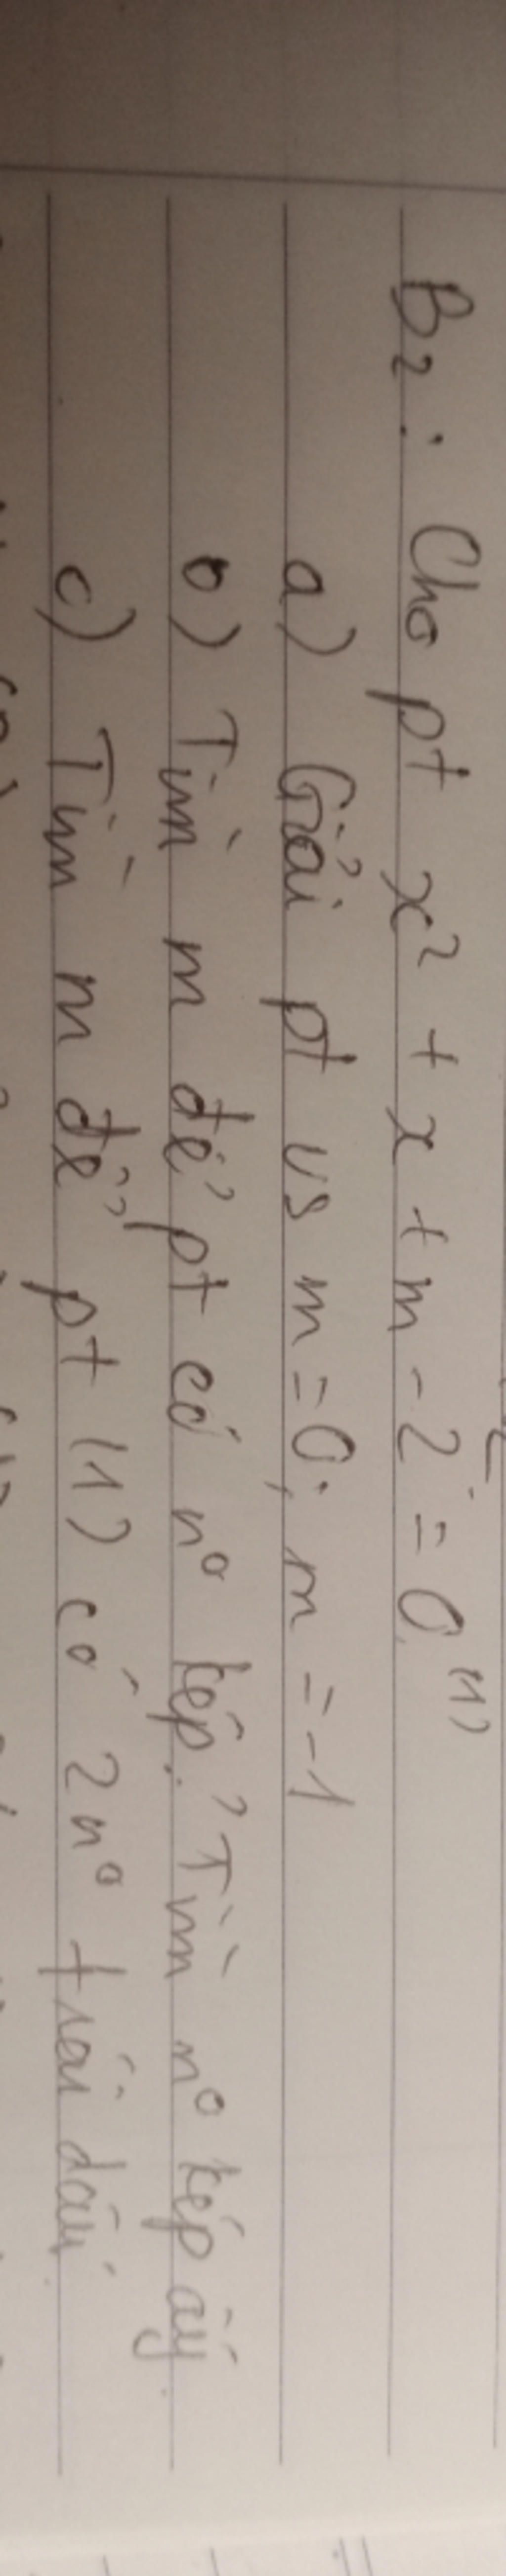 B2: Cho pt x² + x + m - 2 = 0 (1)
a) Giải pt vs m = 0; m = -1
b) Tìm m để pt có n° kép? Tìm n° kép ấy.
c) Tìm m để pt (1) có 2 n° trái dấu.